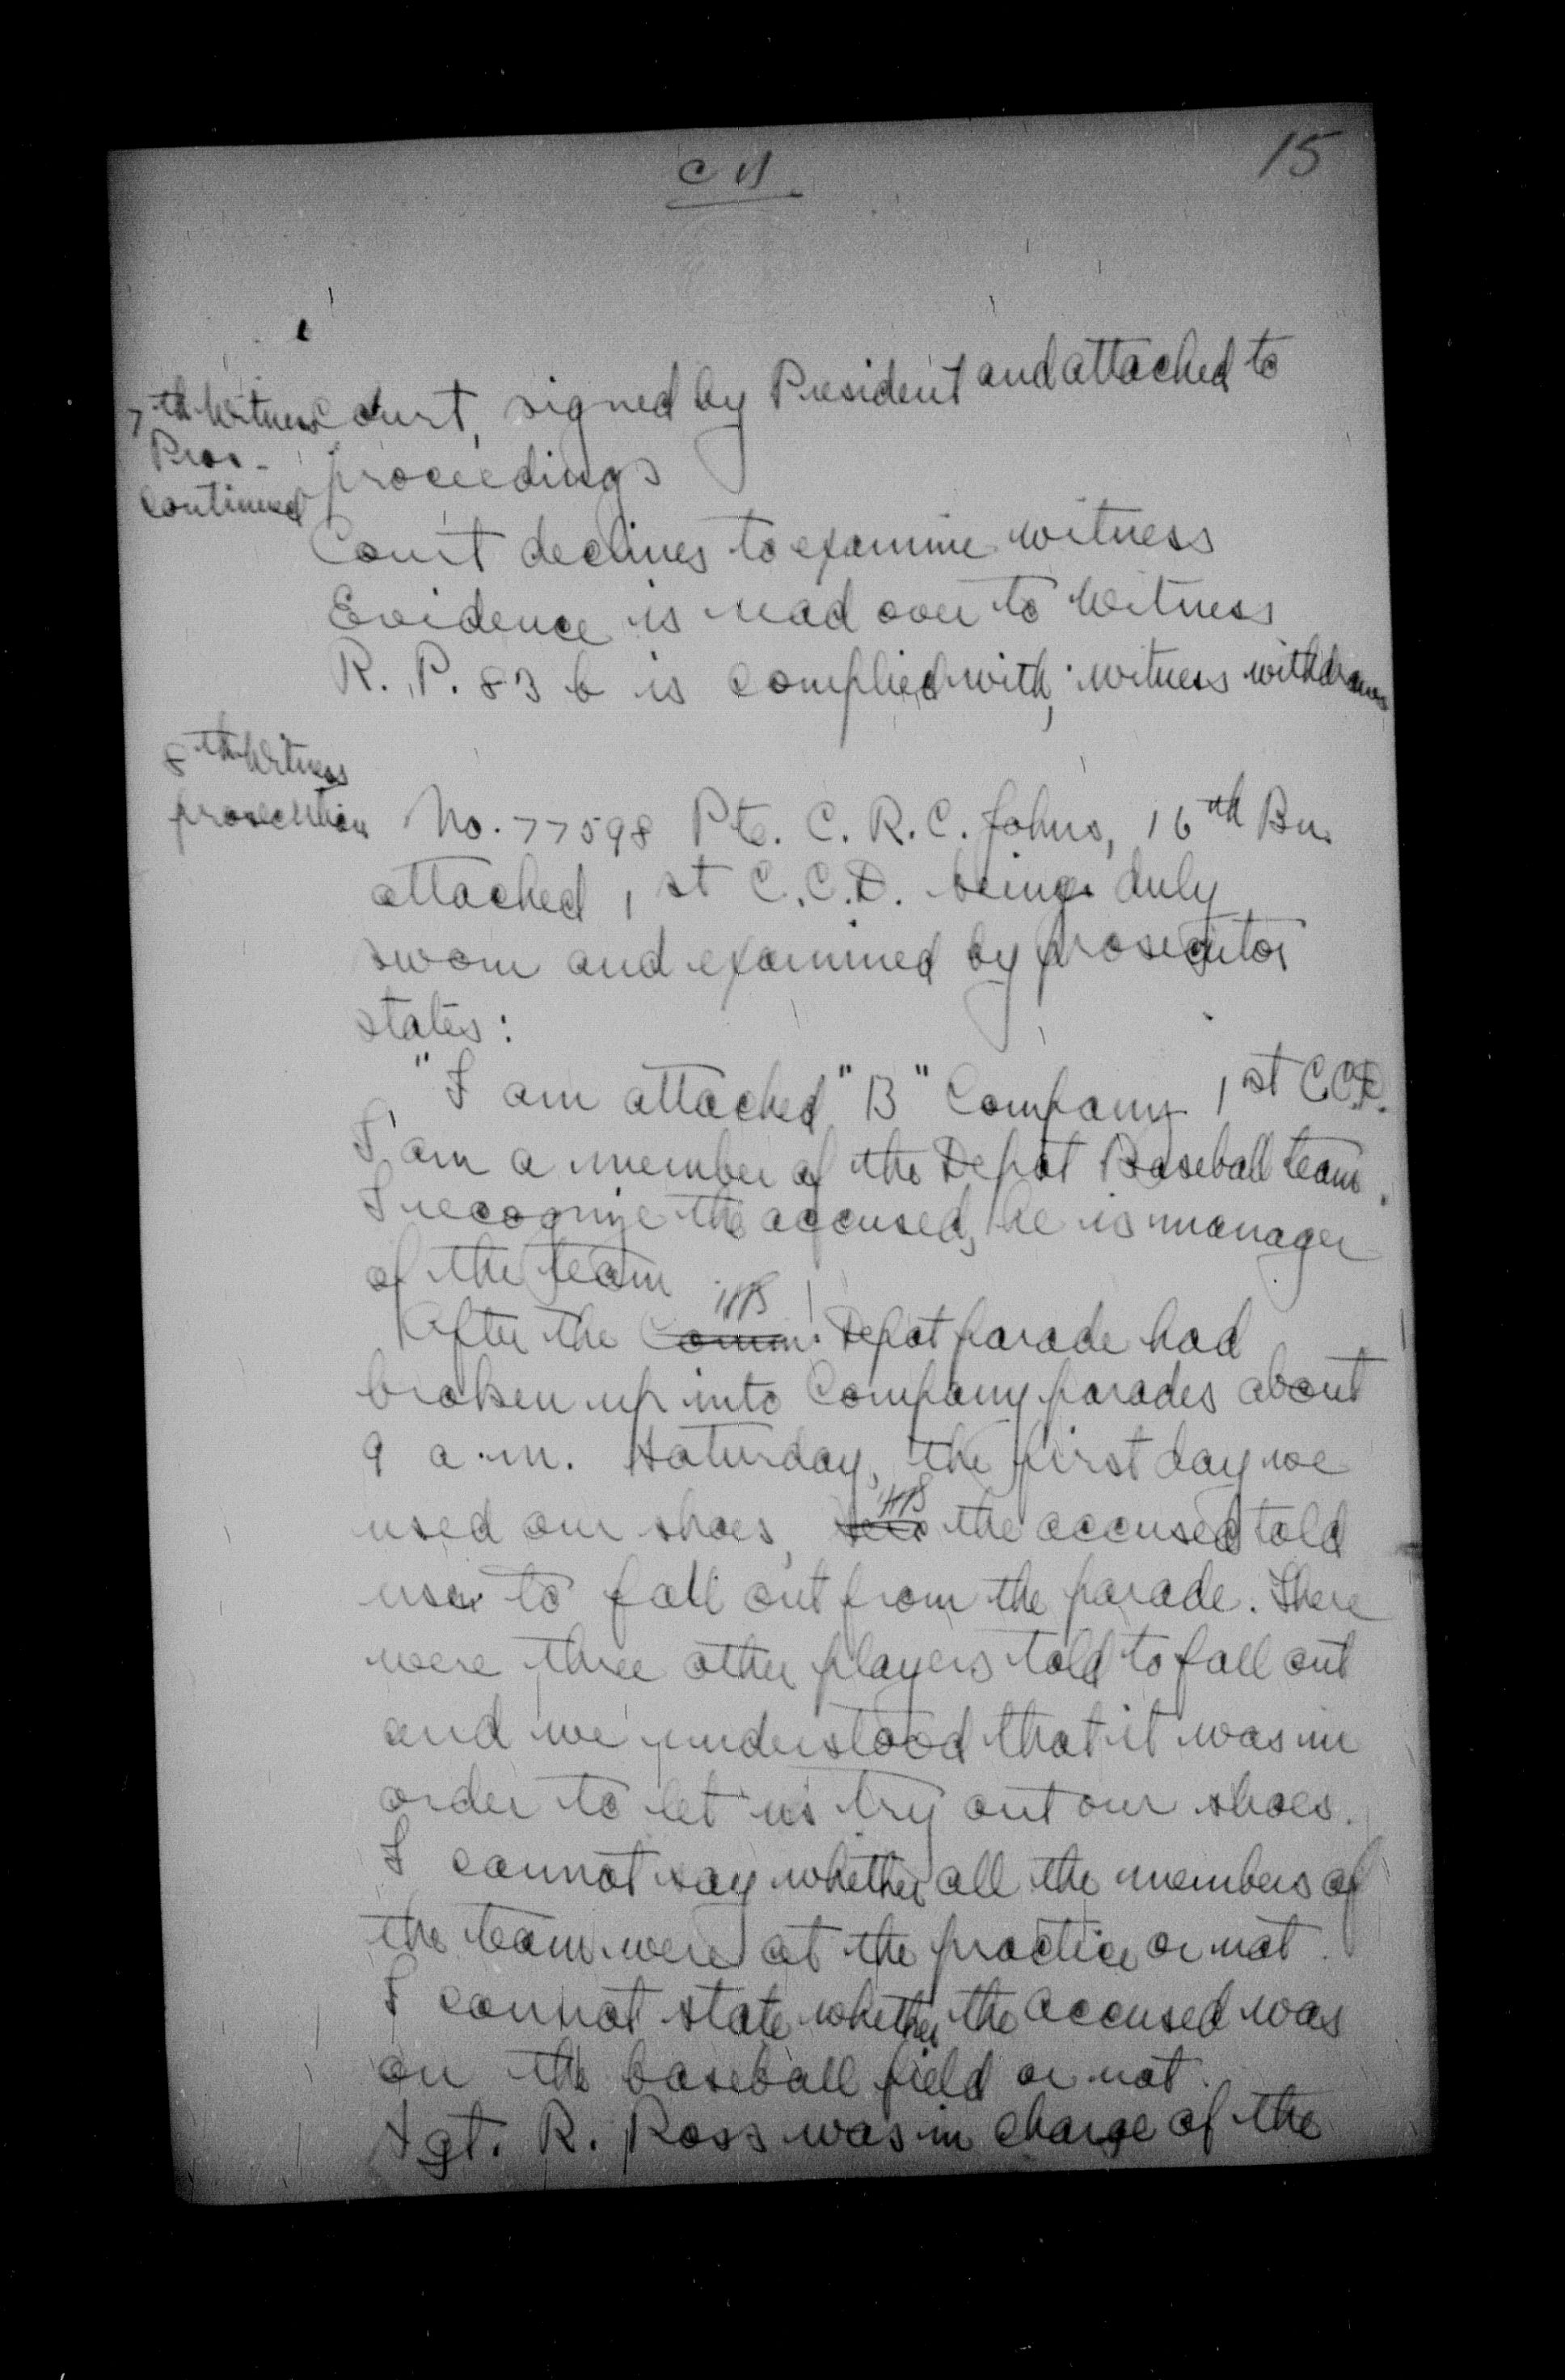 15
7th Witness
Pros.
continued
Court, signed by President and attached to
proceedings
Court declines to examine witness
Evidence is read over to Witness
R. P. 83 b is complied with; witness withdraws
8th Witness
prosecution
No. 77598 Pte. C. R. C. Johns, 16th Bn.
attached 1st C.C.D. being duly
sworn and examined by prosecutor
states:
"I am attached "B" Company 1st C.C.D.
I am a member of the Depot Baseball team.
I recognize the accused, he is manager
of the team
After the Comm. Depot parade had
broken up into Company parades about
9 a.m. Saturday, the first day we
used our shoes, the accused told
us to fall out from the parade. There
were three other players told to fall out
and we understood that it was in
order to let us try out our shoes.
I cannot say whether all the members of
the team were at the practice or not.
I cannot state whether the accused was
on the baseball field or not.
Sgt. R. Ross was in charge of the